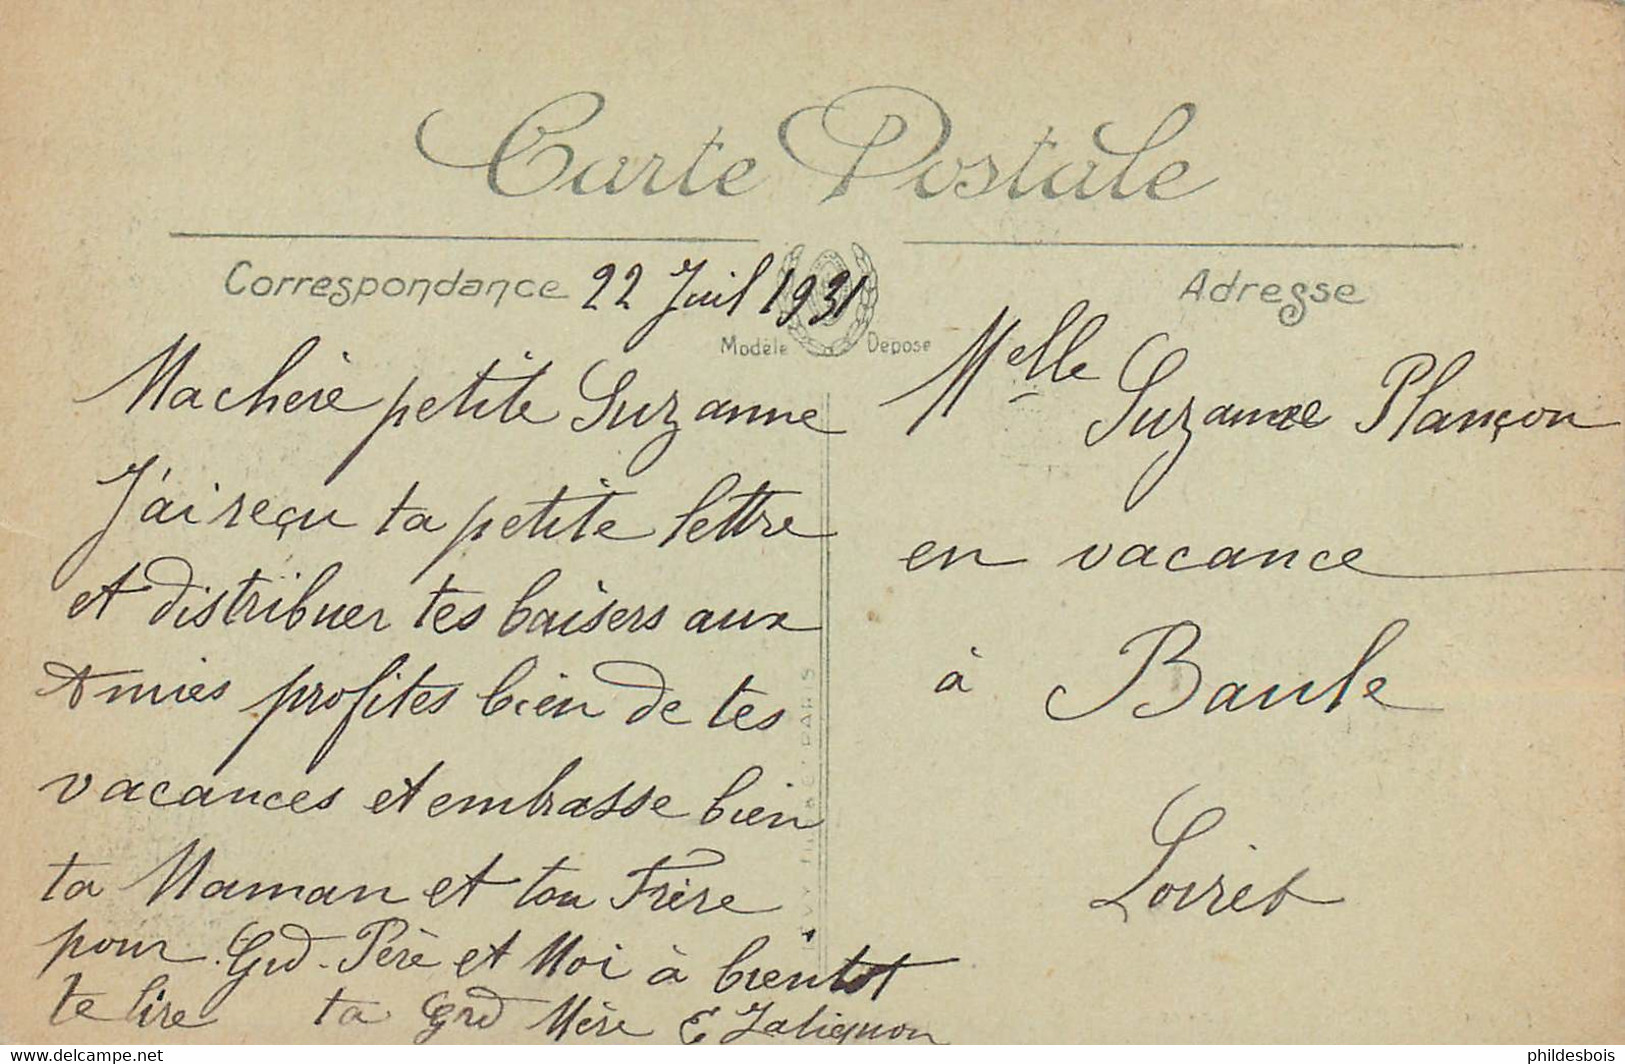 Carte Postale
Correspondance 22 Juil 1931
Modèle Déposé
Ma chère petite Suzanne
J'ai reçu ta petite lettre
et distribuer tes baisers aux
Amies profites bien de tes
vacances et embrasse bien
ta Maman et ton Frère
pour Grd-Père et Moi à bientot
te lire ta Grd Mère E
Adresse
Melle Suzanne Plançon
en vacance
à Baule
Loiret
PARIS
delcampe.net
phildesbois